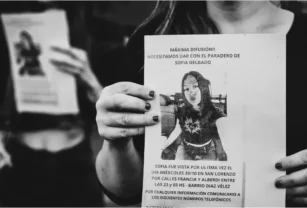 MÁXIMA DIFUSIÓN!!
NECESITAMOS DAR CON EL PARADERO DE
SOFIA DELGADO
SOFIA FUE VISTA POR ULTIMA VEZ EL
DIA MIÉRCOLES 30/10 EN SAN LORENZO
POR CALLES FRANCIA Y ALBERDI ENTRE
LAS 23 y 03 HS - BARRIO DIAZ VÉLEZ
POR CUALQUIER INFORMACIÓN COMUNICARSE A
LOS SIGUIENTES NÚMEROS TELEFÓNICOS